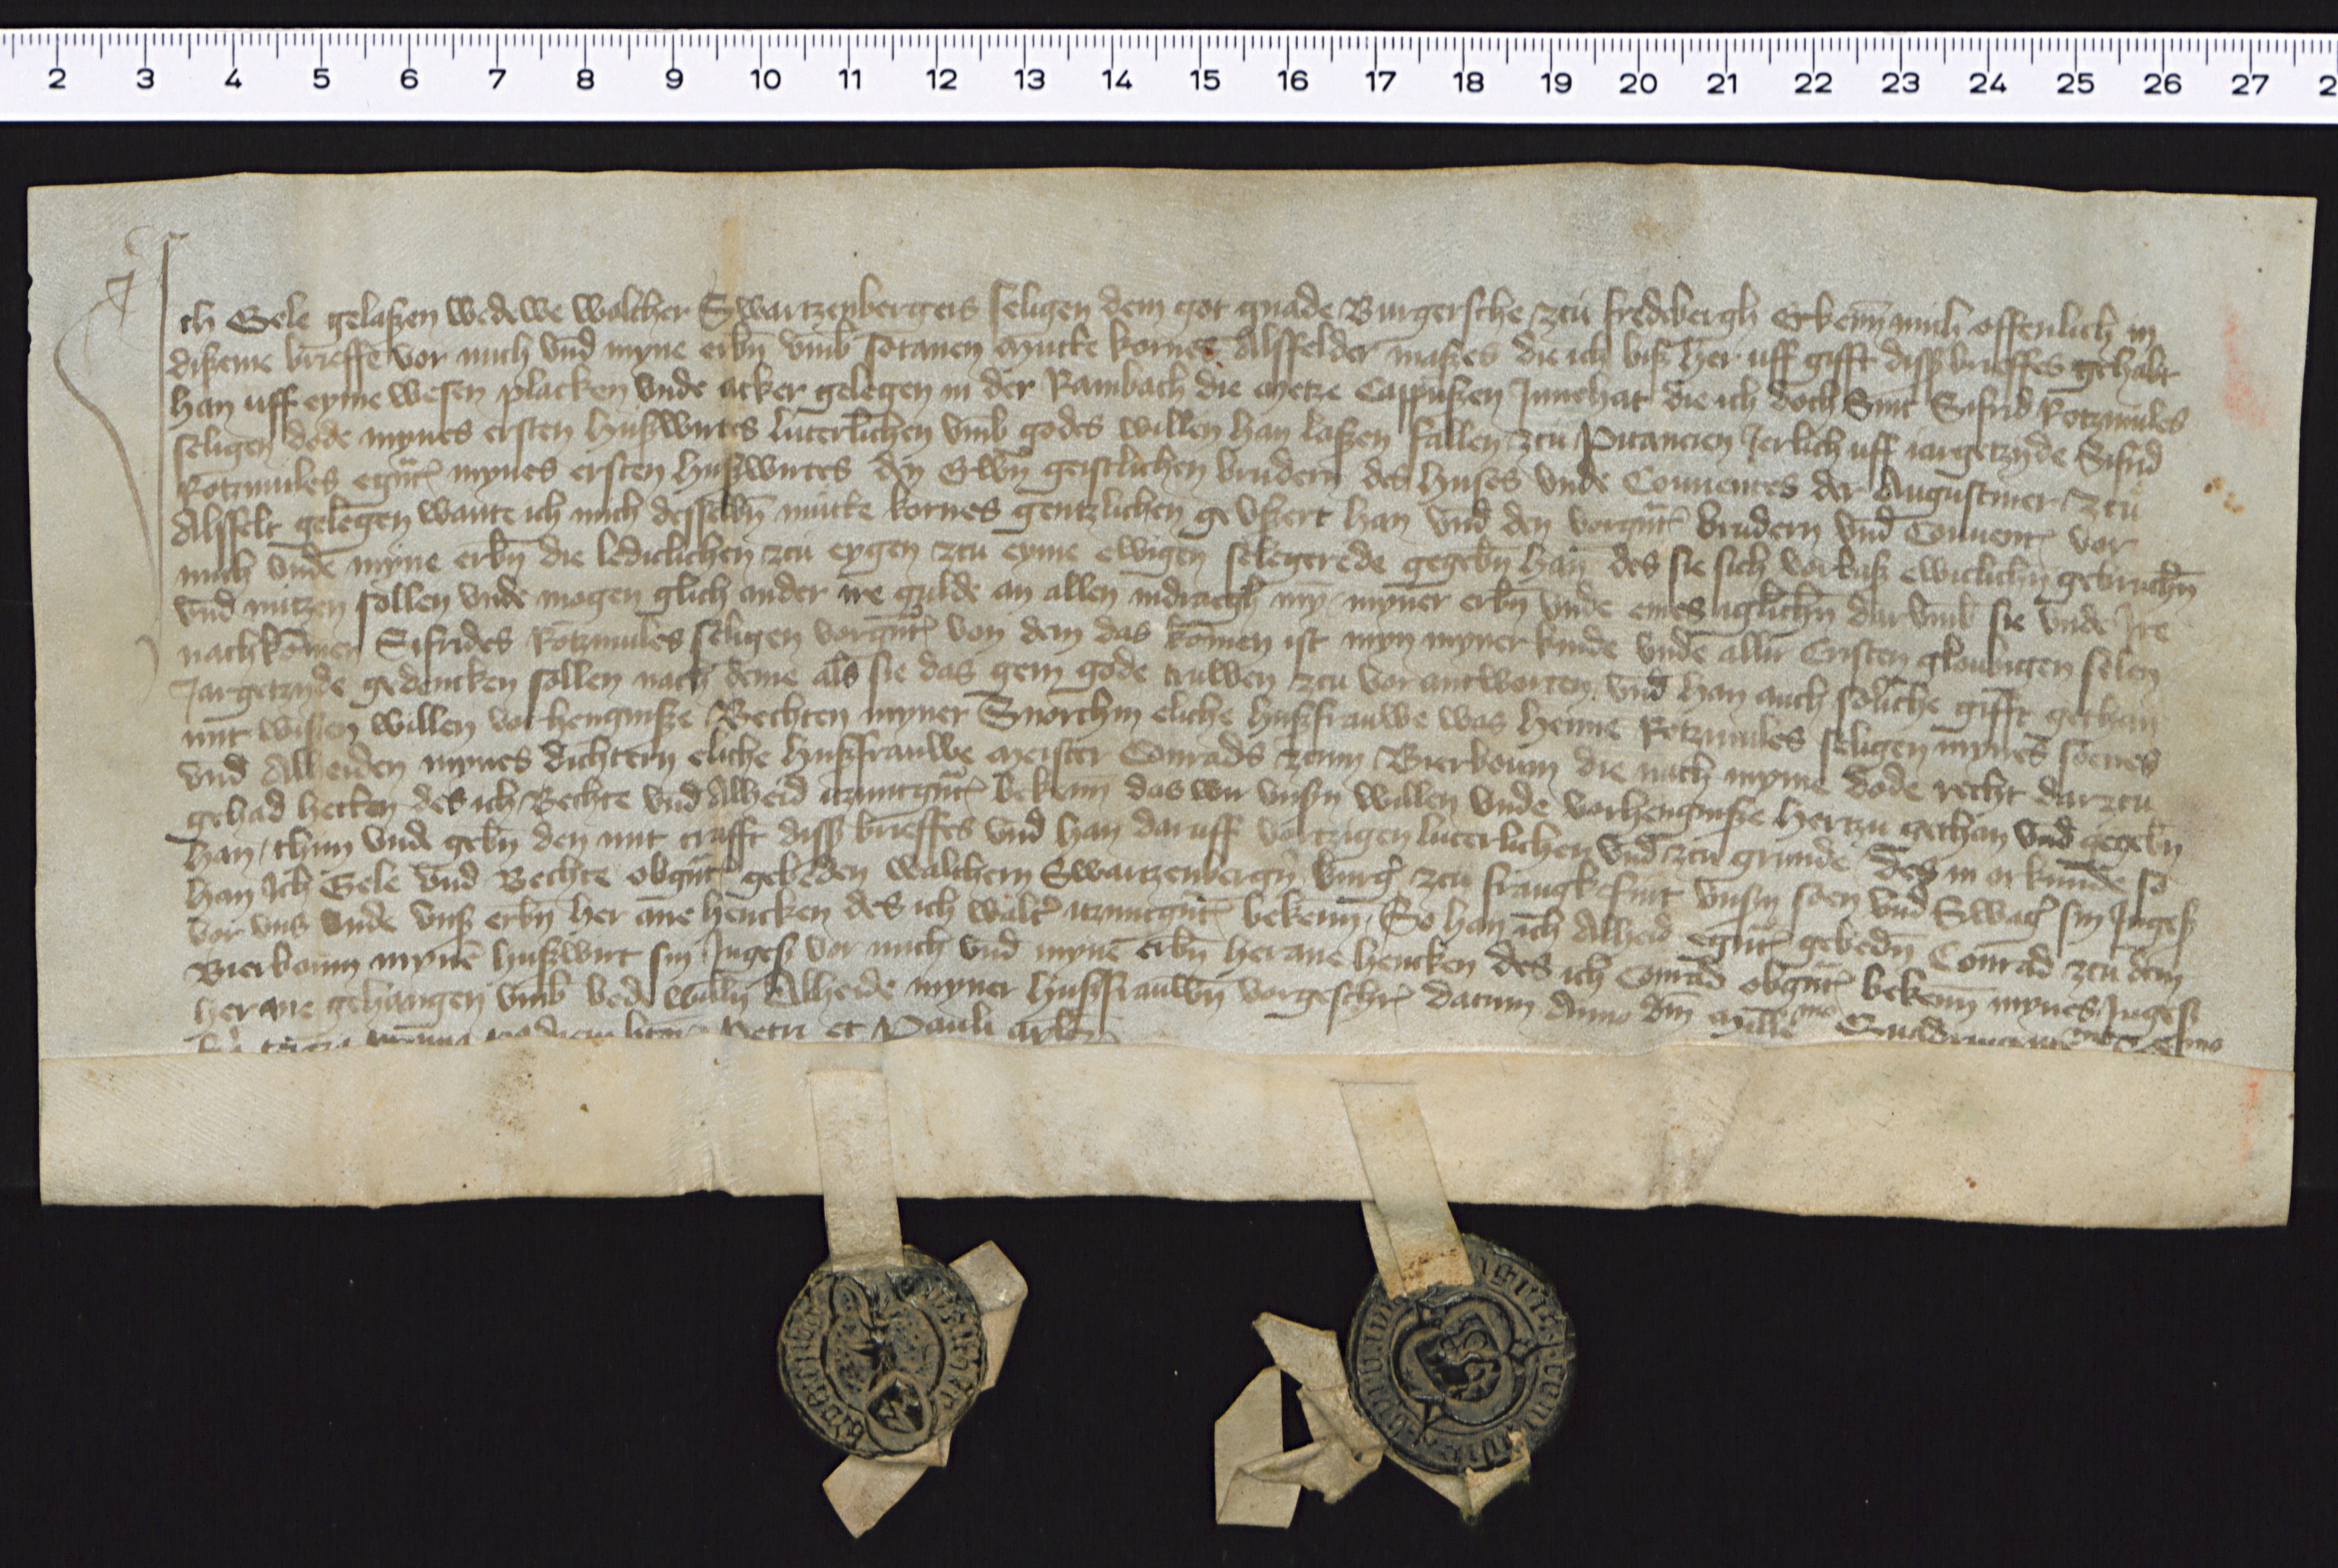 2 3 4 5 6 7 8 9 10 11 12 13 14 15 16 17 18 19 20 21 22 23 24 25 26 27 2
Ich Gele gelaßen wedewe walther Swartzenbergers seligen dem got gnade Burgersche zcu fredebergh Erkenn mich offenlich in
dißeme brieffe vor mich vnd myne erbn vmb sotanen mutte kornes Alsfelder maßes die ich biß her uff gifft diss brieffes gehabt
han uff eyme wesen placken vnde acker gelegen in der Rambach die metze Cappußen Innehat die ich doch Sint Sifrid Rotzmules
seligen dode mynes ersten hußwirtes luterlichen vmb godes willen han laßen fallen zcu Pitancien Jerlich uff iargetzyde Sifrid
Rotzmules egnt mynes ersten hußwirtes dn Erwn geistlichen brudern des huses vnde Conuentes der Augustiner zcu
Alsfelt gelegen wante ich mich desselbn mutte kornes gentzlichen geußert han vnd den vorgnt brudern vnd Conuent vor
mich vnde myne erbn die lediclichen zcu eygen zcu eyme ewigen selegerede gegebn han des sie sich vorbaß ewiclichn gebruchn
vnd nutzen sollen vnde mogen glich ander ire gulde an allen indraegh my myner erbn vnde eines iglichn darvmb sie vnde Ire
nachkomen Sifrides Rotzmules seligen vorgnt von dem das komen ist myn myner kinde vnde alln Cristen gloubigen selen
Jargetzyde gedencken sollen nach deme als sie das gein gode truwen zcu vorantworten vnd han auch soliche gifft gethan
mit wißen willen vorhengniße Bechten myner Snorchin eliche hußfrauwe was henne Rotzmules seligen mynes soenes
vnd Alheiden mynes dichtern eliche hußfrauwe meister Conrads zcum Bierboum die nach myme dode recht darzcu
gehad hetten des ich Bechte vnd Alheid itzuntgnt bekenn das wir vnsin willen vnde vorhengniße hertzu gethan vnd gegebn
han thun vnde gebn den mit crafft diss brieffes vnd han daruff vortzigen luterlichen vnd zcu grunde des in orkunde so
han Ich Gele vnd Bechte obgnt gebeden walthern Swartzenbergn burg zcu frangkefurt vnsin soen vnd Swag sin Ingeß
vor vns vnde vnß erbn her ane hencken des ich walt itzuntgnt bekenn So han ich Alheid egnt gebedn Conrad zcu dem
Bierboum myne hußwirt sin Ingeß vor mich vnd myne erbn herane hencken des ich Conrad obgnt bekenn mynes Ingeß
herane gehangen vmb bede willn Alheide myner hußfrauwn vorgeschr datum Anno dm mille mo
Petri et Pauli aplor